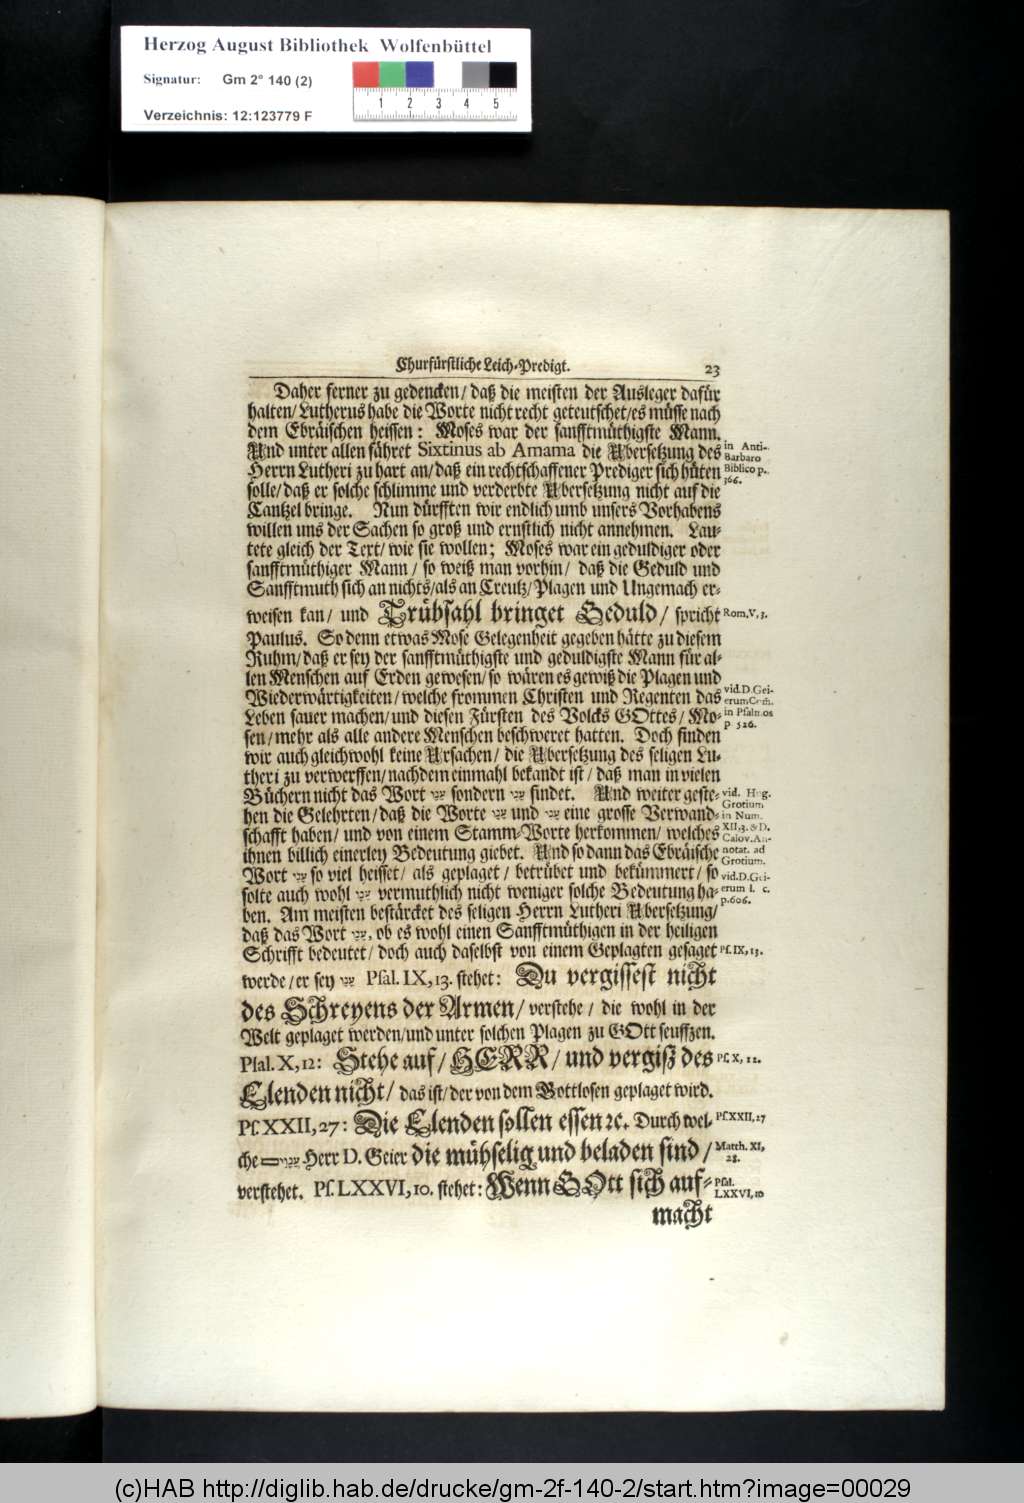 Herzog August Bibliothek Wolfenbüttel
Signatur: Gm 2° 140 (2)
1 2 3 4 5
Verzeichnis: 12:123779 F
Churfürstliche Leich-Predigt. 23
Daher ferner zu gedencken/ daß die meisten der Ausleger dafür
halten/ Lutherus habe die Worte nicht recht geteutschet/ es müsse nach
dem Ebräischen heissen: Moses war der sanfftmüthigste Mann.
Und unter allen fähret Sixtinus ab Amama die Ubersetzung des
Herrn Lutheri zu hart an/ daß ein rechtschaffener Prediger sich hüten
solle/ daß er solche schlimme und verderbte Ubersetzung nicht auf die
Cantzel bringe. Nun dürfften wir endlich umb unsers Vorhabens
willen uns der Sachen so groß und ernstlich nicht annehmen. Lau-
tete gleich der Text/ wie sie wollen; Moses war ein geduldiger oder
sanfftmüthiger Mann/ so weiß man vorhin/ daß die Geduld und
Sanfftmuth sich an nichts/ als an Creutz/ Plagen und Ungemach er-
weisen kan/ und Trübsahl bringet Geduld/ spricht
Paulus. So denn etwas Mose Gelegenheit gegeben hätte zu diesem
Ruhm/ daß er sey der sanfftmüthigste und geduldigste Mann für al-
len Menschen auf Erden gewesen/ so wären es gewiß die Plagen und
Wiederwärtigkeiten/ welche frommen Christen und Regenten das
Leben sauer machen/ und diesen Fürsten des Volcks GOttes/ Mo-
sen/ mehr als alle andere Menschen beschweret hatten. Doch finden
wir auch gleichwohl keine Ursachen/ die Ubersetzung des seligen Lu-
theri zu verwerffen/ nachdem einmahl bekandt ist/ daß man in vielen
Büchern nicht das Wort sondern findet. Und weiter geste-
hen die Gelehrten/ daß die Worte und eine grosse Verwand-
schafft haben/ und von einem Stamm-Worte herkommen/ welches
ihnen billich einerley Bedeutung giebet. Und so dann das Ebräische
Wort so viel heisset/ als geplaget/ betrübet und bekümmert/ so
solte auch wohl vermuthlich nicht weniger solche Bedeutung ha-
ben. Am meisten bestärcket des seligen Herrn Lutheri Ubersetzung/
daß das Wort , ob es wohl einen Sanfftmüthigen in der heiligen
Schrifft bedeutet/ doch auch daselbst von einem Geplagten gesaget
werde/ er sey Psal. IX, 13. stehet: Du vergissest nicht
des Schreyens der Armen/ verstehe/ die wohl in der
Welt geplaget werden/ und unter solchen Plagen zu GOtt seuffzen.
Psal. X, 12: Stehe auf/ HERR/ und vergiß des
Elenden nicht/ das ist/ der von dem Gottlosen geplaget wird.
Ps. XXII, 27: Die Elenden sollen essen ꝛc. Durch wel-
che Herr D. Geier die mühselig und beladen sind/
verstehet. Ps. LXXVI, 10. stehet: Wenn GOtt sich auf-
macht
in Anti-
Barbaro
Biblico p.
366.
Rom. V, 3.
vid. D. Gei-
erum Com̄.
in Psalmos
p. 526.
vid. Hug.
Grotium
in Num.
XII, 3. & D.
Calov. An-
notat. ad
Grotium.
vid. D. Gei-
erum l. c.
p. 606.
Ps. IX, 13.
Ps. X, 12.
Ps. XXII, 27
Matth. XI,
28.
Psal.
LXXVI, 10
(c)HAB http://diglib.hab.de/drucke/gm-2f-140-2/start.htm?image=00029